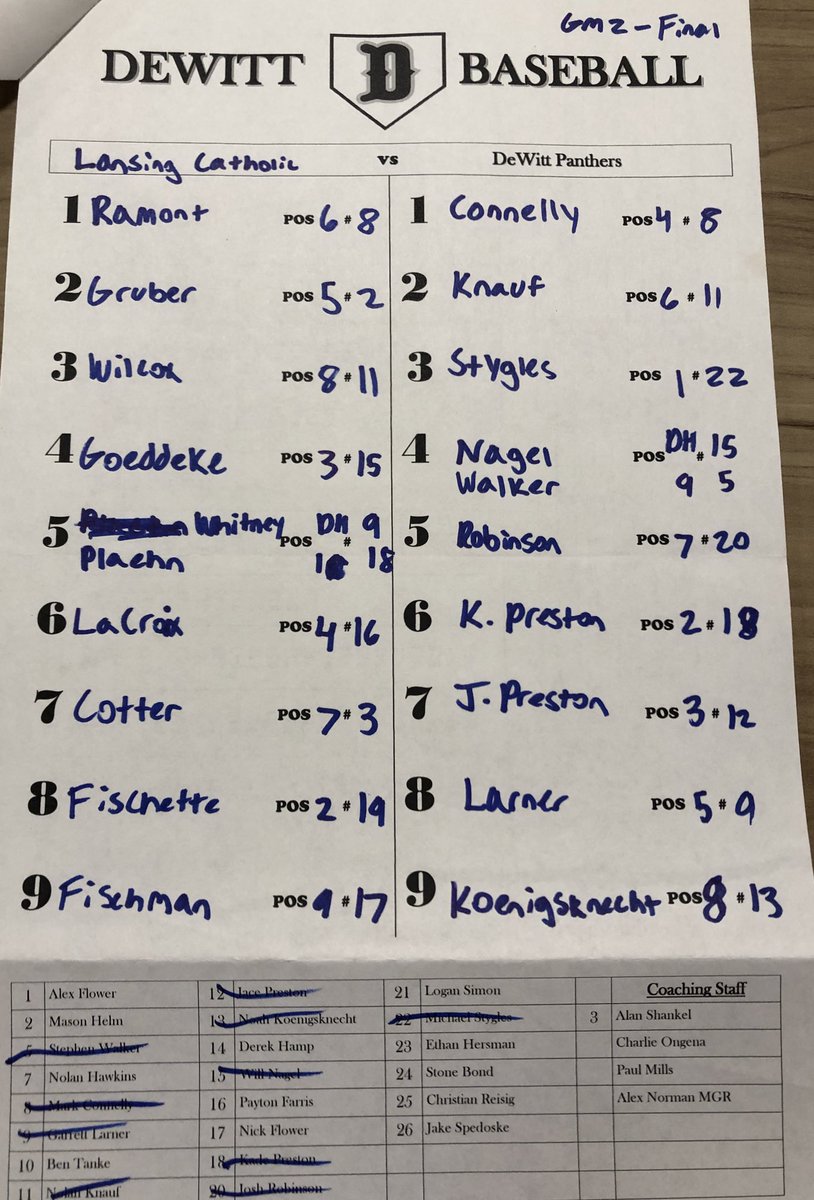 GM2 - Final
DEWITT D BASEBALL
Lansing Catholic vs DeWitt Panthers
1 Ramont POS 6 # 8 1 Connelly POS 4 # 8
2 Gruber POS 5 # 2 2 Knauf POS 6 # 11
3 Wilcox POS 8 # 11 3 Stygles POS 1 # 22
4 Goeddeke POS 3 # 15 4 Nagel POS DH # 15
Walker 9 5
5 Whitney POS DH # 9 5 Robinson POS 7 # 20
Plaehn 1 18
6 LaCroix POS 4 # 16 6 K. Preston POS 2 # 18
7 Cotter POS 7 # 3 7 J. Preston POS 3 # 12
8 Fischette POS 2 # 19 8 Larner POS 5 # 9
9 Fischman POS 9 # 17 9 Koenigsknecht POS 8 # 13
1 Alex Flower 12 Jace Preston 21 Logan Simon Coaching Staff
2 Mason Helm 13 Noah Koenigsknecht 22 Michael Stygles 3 Alan Shankel
5 Stephen Walker 14 Derek Hamp 23 Ethan Hersman Charlie Ongena
7 Nolan Hawkins 15 Will Nagel 24 Stone Bond Paul Mills
8 Mark Connelly 16 Payton Farris 25 Christian Reisig Alex Norman MGR
9 Garrett Larner 17 Nick Flower 26 Jake Spedoske
10 Ben Tanke 18 Kade Preston
11 Nolan Knauf 20 Josh Robinson